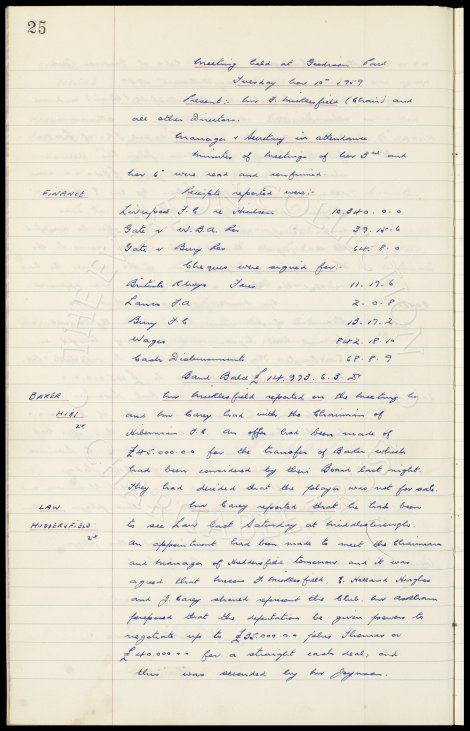 25
Meeting held at Goodison Park
Tuesday Nov 10th 1959
Present:- Mr F. Micklesfield (Chair) and
all other Directors.
Manager & Secretary in attendance
Minutes of Meetings of Nov 3rd and
Nov 6th were read and confirmed.
FINANCE Receipts reported were:-
Liverpool F.C. re Hudson 10,340. 0. 0
Gate v W.B.A. Res 39. 15. 6
Gate v Bury Res 64. 8. 0
Cheques were signed for:-
British Rlways Fares 11. 17. 6
Lancs F.A 2. 0. 8
Bury F.C 13. 17. 2
Wages 842. 18. 10
Cash Disbursements 68. 8. 9
Bank Balce £14,973. 6. 3 Dr
BAKER Mr Micklesfield reported on the meeting he
HIBS and Mr Carey had with the Chairman of
Hibernian F.C. An offer had been made of
£45.000.0.0 for the transfer of Baker which
had been considered by their Board last night.
They had decided that the player was not for sale.
LAW Mr Carey reported that he had been
HUDDERSFIELD to see Law last Saturday at Middlesbrough.
An appointment had been made to meet the Chairman
and Manager of Huddersfield tomorrow and it was
agreed that Messrs F. Micklesfield, E. Holland Hughes
and J. Carey should represent the Club. Mr Askham
proposed that the deputation be given powers to
negotiate up to £35.000.0.0 plus Thomas or
£40.000.0.0 for a straight cash deal, and
this was seconded by Mr Joynson.